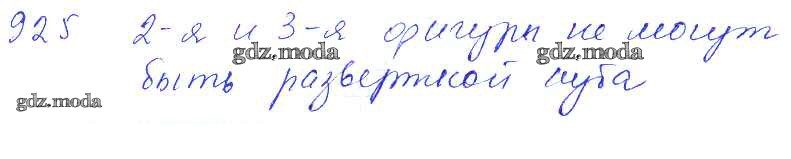 925 2-я и 3-я фигуры не могут
gdz.moda gdz.moda
быть разверткой куба
gdz.moda